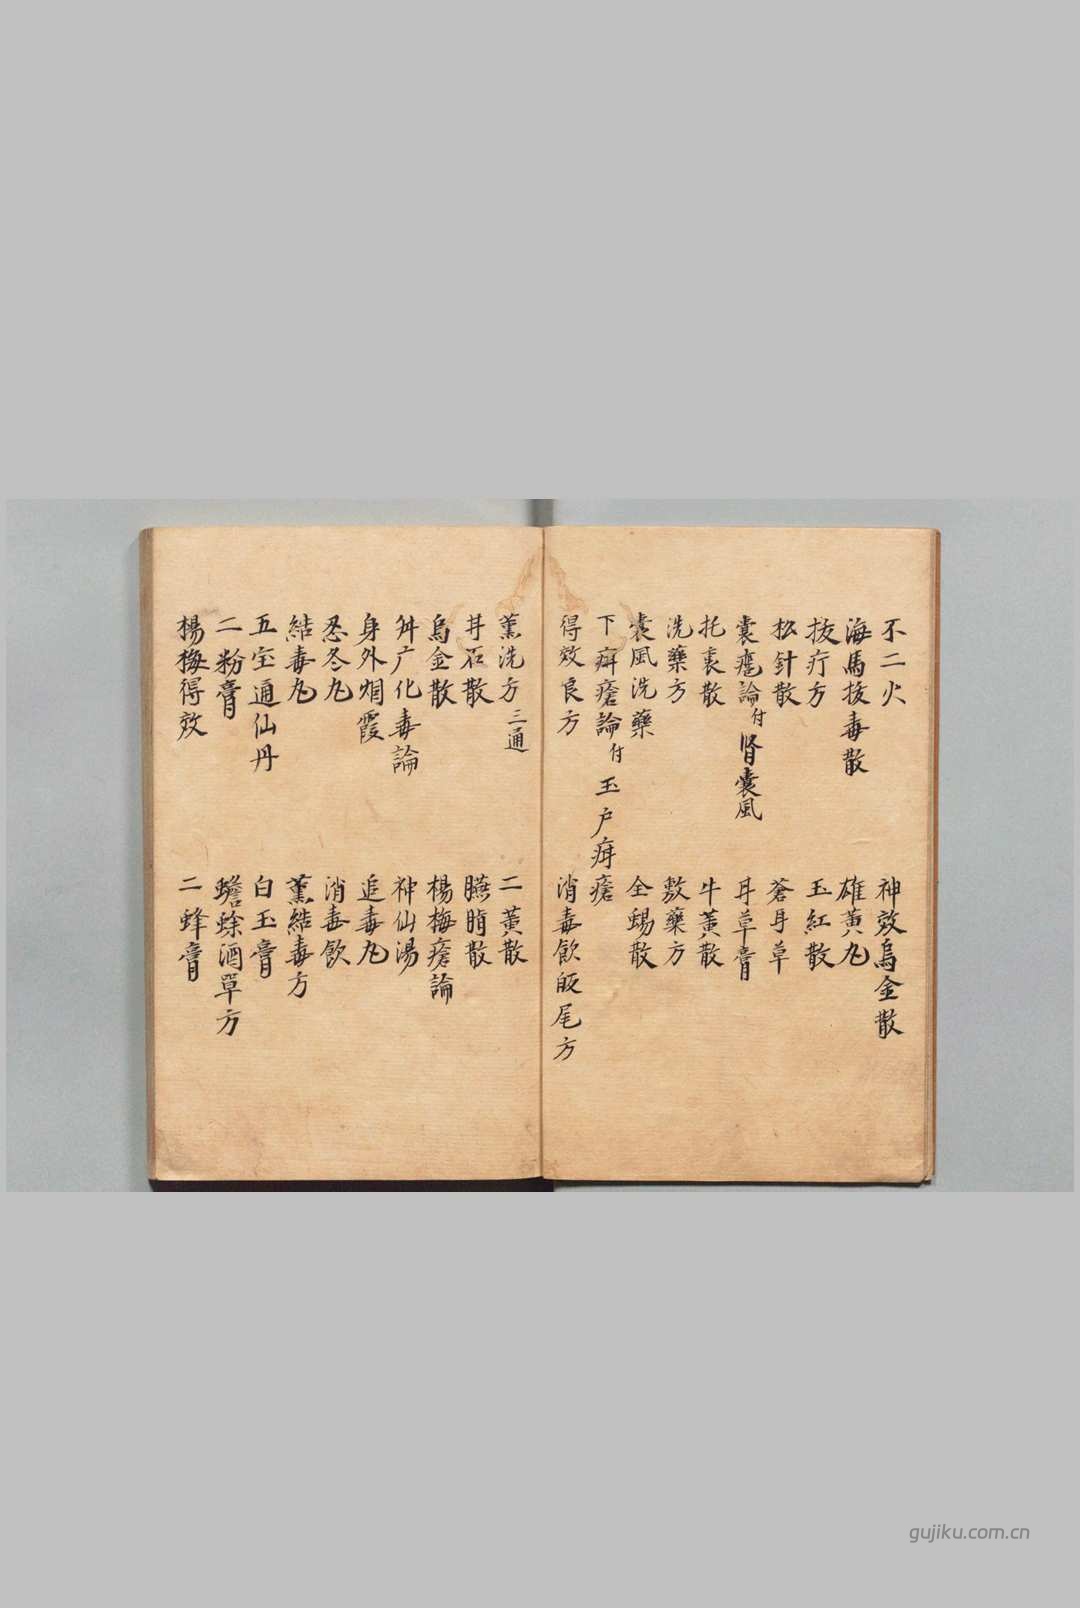 不二火 神效烏金散
海馬拔毒散 雄黃丸
拔疔方 玉紅散
松針散 蒼耳草
囊癰論付腎囊風 耳草膏
托裏散 牛黃散
洗藥方 敷藥方
囊風洗藥 全蝎散
下疳瘡論付玉戶疳瘡
得效良方 消毒飲皈尾方
薰洗方三通 二黃散
井石散
烏金散 楊梅瘡論
舛广化毒論 神仙湯
身外烟霞 追毒丸
忍冬丸 消毒飲
結毒丸 薰結毒方
五宝通仙丹 白玉膏
二粉膏 蟾蜍酒單方
楊梅得效 二蜂膏
gujiku.com.cn